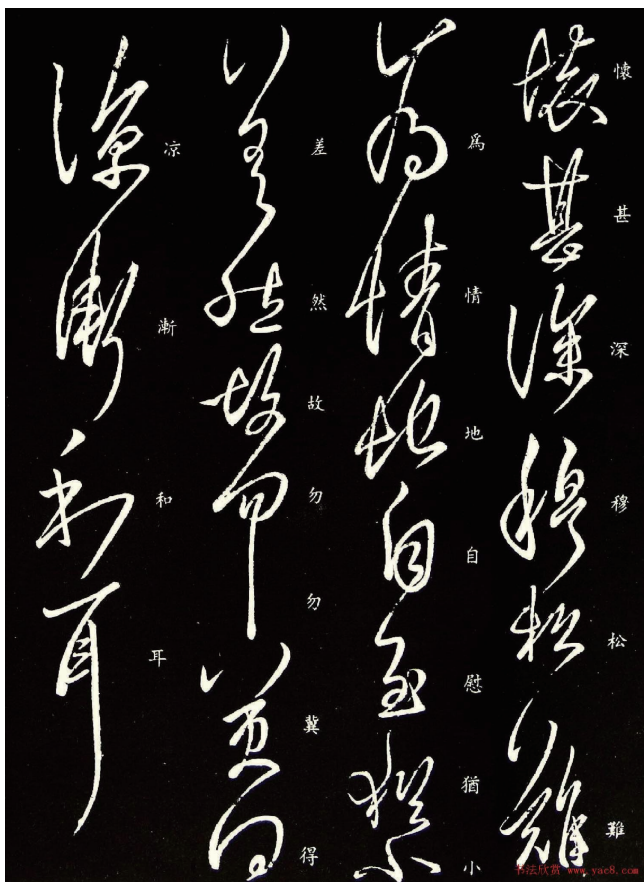 懷甚深穆松難
為情地自慰猶小
差然故勿勿冀得
凉漸和耳
书法欣赏 www.yac8.com